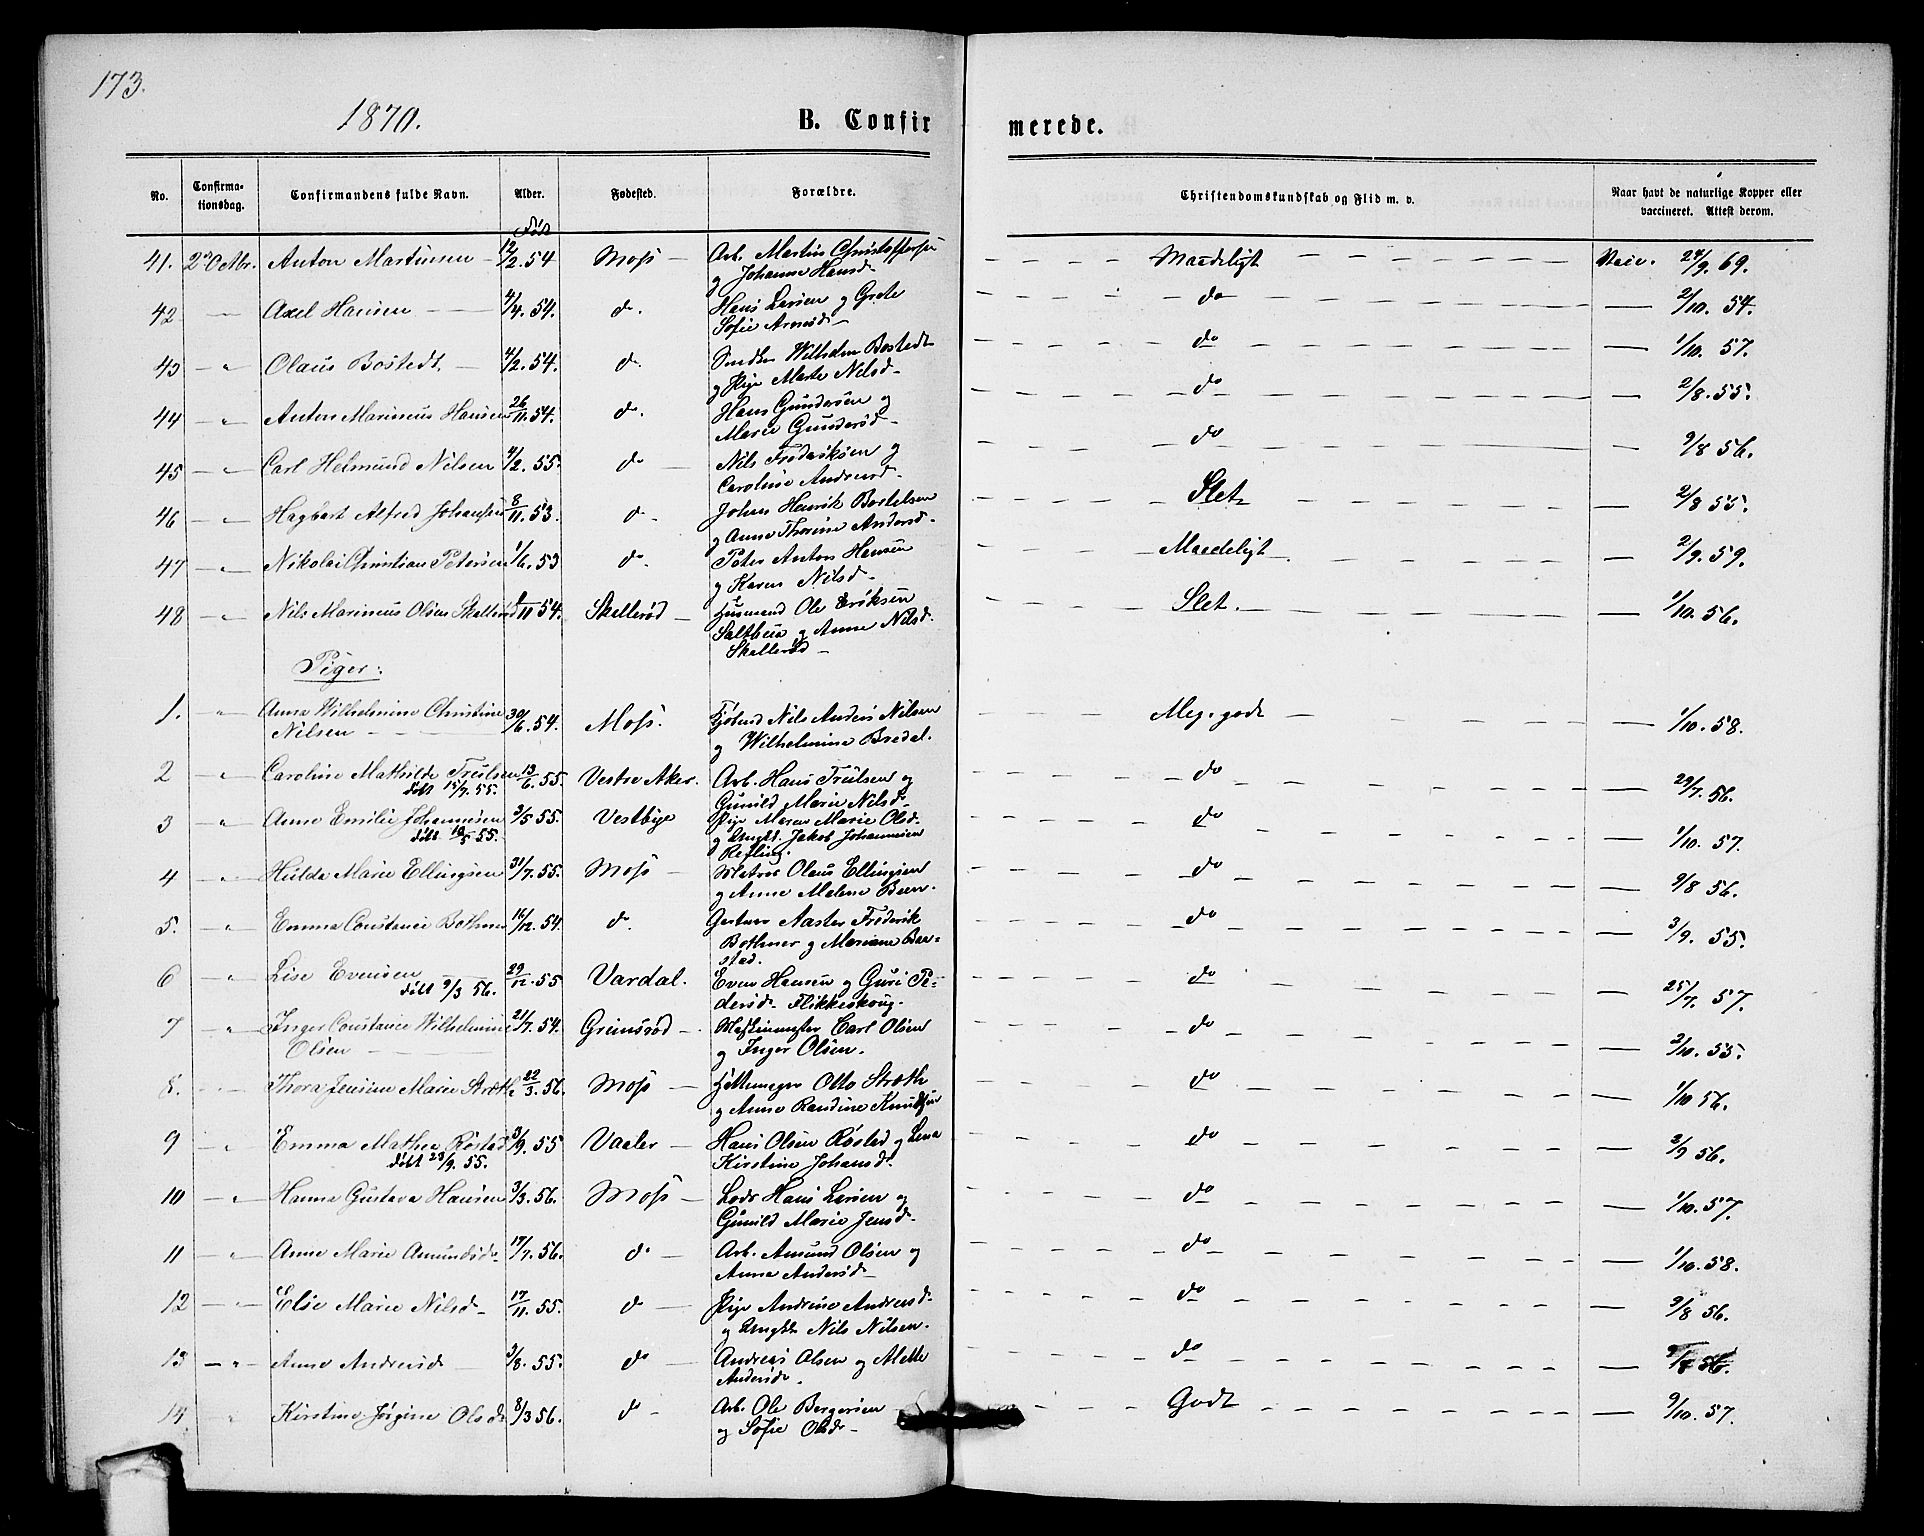 173.
1870.
B. Confirmerede.
No. Confirmationsdag. Confirmandens fulde Navn. Alder. Fødested. Forældre. Christendomskundskab og Flid m. v. Naar havt de naturlige Kopper eller vaccineret. Attest derom.
Født
41. 2 Octbr. Anton Martinsen 12/2. 54 Moss Arb. Martin Christoffersen Maadeligt Vacc. 24/9. 69.
og Johanne Hansd.
42 " Axel Hansen 4/4. 54. do. Hans Larsen og Grete do 2/10. 54.
Sofie Arnesd.
43 " Olaus Bostedt 4/2. 54. do. Smedsv. Wilhelm Bostedt do 1/10. 57.
og Pige Marte Nilsd.
44 " Anton Marinius Hansen 26/11. 54. do. Hans Gundersen og do 2/8. 55.
Marie Gundersd.
45 " Carl Helmund Nilsen 4/2. 55. do Nils Frederiksen og do 9/8 56.
Caroline Andreasd.
46 " Hagbart Alfred Johansen 8/11. 53. do. Johan Henrik Bertelsen Slet 2/8 55.
og Anne Thorine Andersd.
47 " Nikolai Christian Petersen 1/6. 53 do. Peter Anton Hansen Maadeligt 2/9. 59.
og Karen Nilsd.
48 " Nils Marinius Olsen Skallerød 1/11 54. Skallerød Husmand Ole Eriksen Slet. 1/10. 56.
Saltbui og Anne Nilsd.
Skallerød
Piger:
1. " Anna Wilhelmine Christine 30/6. 54. Moss. Kjøbmd Nils Anders Nilsen Meg. godt 1/10. 58.
Nilsen og Wilhelmine Bredal.
2 " Caroline Mathilde Trulsen 13/6. 55. Vestre Aker. Arb. Hans Trulsen og do 29/7. 56.
døbt 15/7. 55. Gunild Marie Nilsd.
3 " Anne Emilie Johannesen 3/5 55. Vestbye Pige Maren Marie Olsd. do 1/10. 57.
døbt og Ungkl. Jakob Johannesen
Refling.
4 " Hulda Marie Ellingsen 31/7. 55. Moss Matros Olaus Ellingsen do 9/8 56.
og Anne Malene Been.
5. " Emma Constance Bothner 16/12. 54. do. Gartner Aaster Frederik do 3/9. 55.
Bothner og Mariane Baastad.
6 " Lise Evensen 29/12. 55 Vardal. Even Hansen og Guri Pe- do 25/7. 57.
døbt 9/3 56. dersd. Flikkeskoug.
7 " Inger Constance Wilhelmine 21/7. 54. Grimsrød Maskinmester Carl Olsen do 2/10. 55.
Olsen og Inger Olsen.
8. " Thora Jensine Marie Stroth 22/3. 56. Moss Otto Stroth do 1/10 56.
og Anne Randine Knudsen
9 " Emma Mathea Røstad 3/9. 55 Vaaler Hans Olsen Røstad og Lena do 2/9 56.
døbt 23/9. 55. Kirstine Johansd.
10 " Hanna Gustava Hansen 3/3. 56. Moss Lods Hans Larsen og do 1/10. 57.
Gunild Marie Jensd.
11 " Anne Marie Amundsd. 17/7. 56. do Arb. Amund Olsen og do 1/10. 58.
Anna Andersd
12 " Else Marie Nilsd. 17/11. 55. do Pige Andrine Andreasd. do 9/8 56.
og Ungkl. Nils Nilsen.
13 " Anne Andreasd. 3/8. 55. do Andreas Olsen og Alette do 56.
Andersd.
14 " Kirstine Jørgine Olsd. 8/3 56. do Arb. Ole Bergersen Godt 9/10. 57.
og Sofie Olsd.